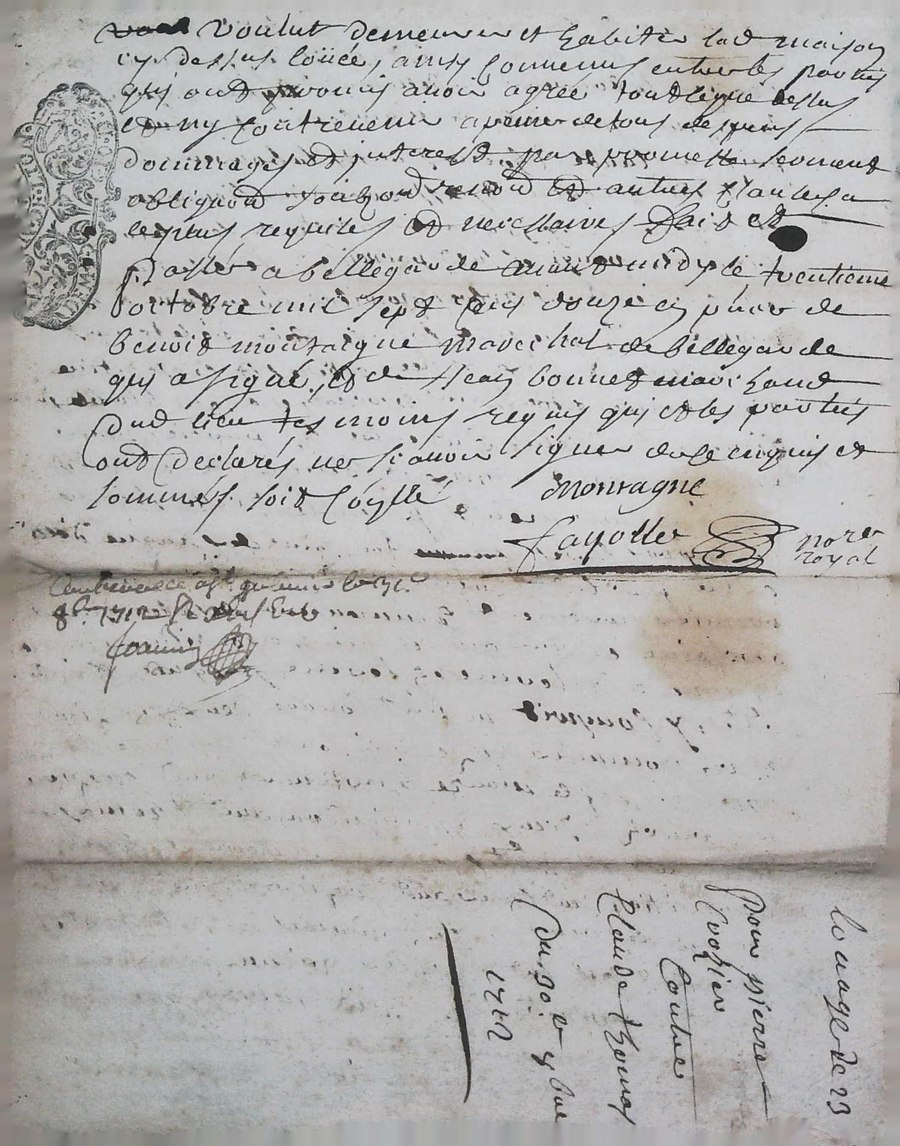 voulut demeurer et habiter lad maison
cy dessus loüée, ainsy convenus entre les parties
qui ont promis avoir agréé tout ce que dessus
et ny contrevenir a peine de tous despens
dommages et interest par promesse serment
obligaon et autres clauses a
ce plus requises et necessaires fait et
passé a bellegarde avant midy le trentieme
octobre mil sept cens douze en pnce de
benoist montaigne marechal de bellegarde
qui a signé, et de Jean bonnet marchand
dud lieu tesmoins requis qui et les parties
ont declarés ne scavoir signer de ce enquis et
sommés soit Coysllé
Montagne
Fayolle
no.re
royal
8bre 1712
louage de 23
pour pierre
Crozier
Contre
Claude
Du 30e 8bre
1712